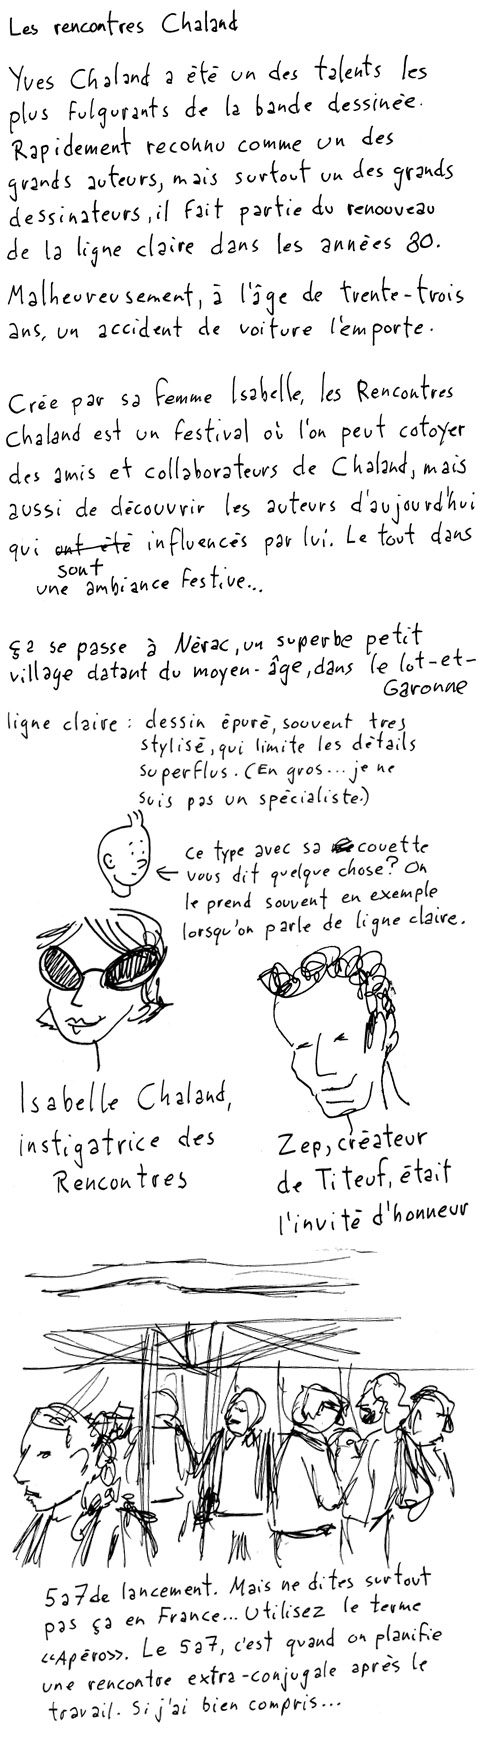 Les rencontres Chaland
Yves Chaland a été un des talents les
plus fulgurants de la bande dessinée.
Rapidement reconnu comme un des
grands auteurs, mais surtout un des grands
dessinateurs, il fait partie du renouveau
de la ligne claire dans les années 80.
Malheureusement, à l'âge de trente-trois
ans, un accident de voiture l'emporte.
Crée par sa femme Isabelle, les Rencontres
Chaland est un festival où l'on peut cotoyer
des amis et collaborateurs de Chaland, mais
aussi de découvrir les auteurs d'aujourd'hui
qui ont été influencés par lui. Le tout dans
sont
une ambiance festive...
Ça se passe à Nérac, un superbe petit
village datant du moyen-âge, dans le lot-et-
Garonne
ligne claire : dessin épuré, souvent tres
stylisé, qui limite les détails
superflus. (En gros... je ne
suis pas un spécialiste.)
ce type avec sa couette
vous dit quelque chose? On
le prend souvent en exemple
lorsqu'on parle de ligne claire.
Isabelle Chaland,
instigatrice des
Rencontres
Zep, créateur
de Titeuf, était
l'invité d'honneur
5a7 de lancement. Mais ne dites surtout
pas ça en France... Utilisez le terme
«Apéro». Le 5a7, c'est quand on planifie
une rencontre extra-conjugale après le
travail. Si j'ai bien compris...